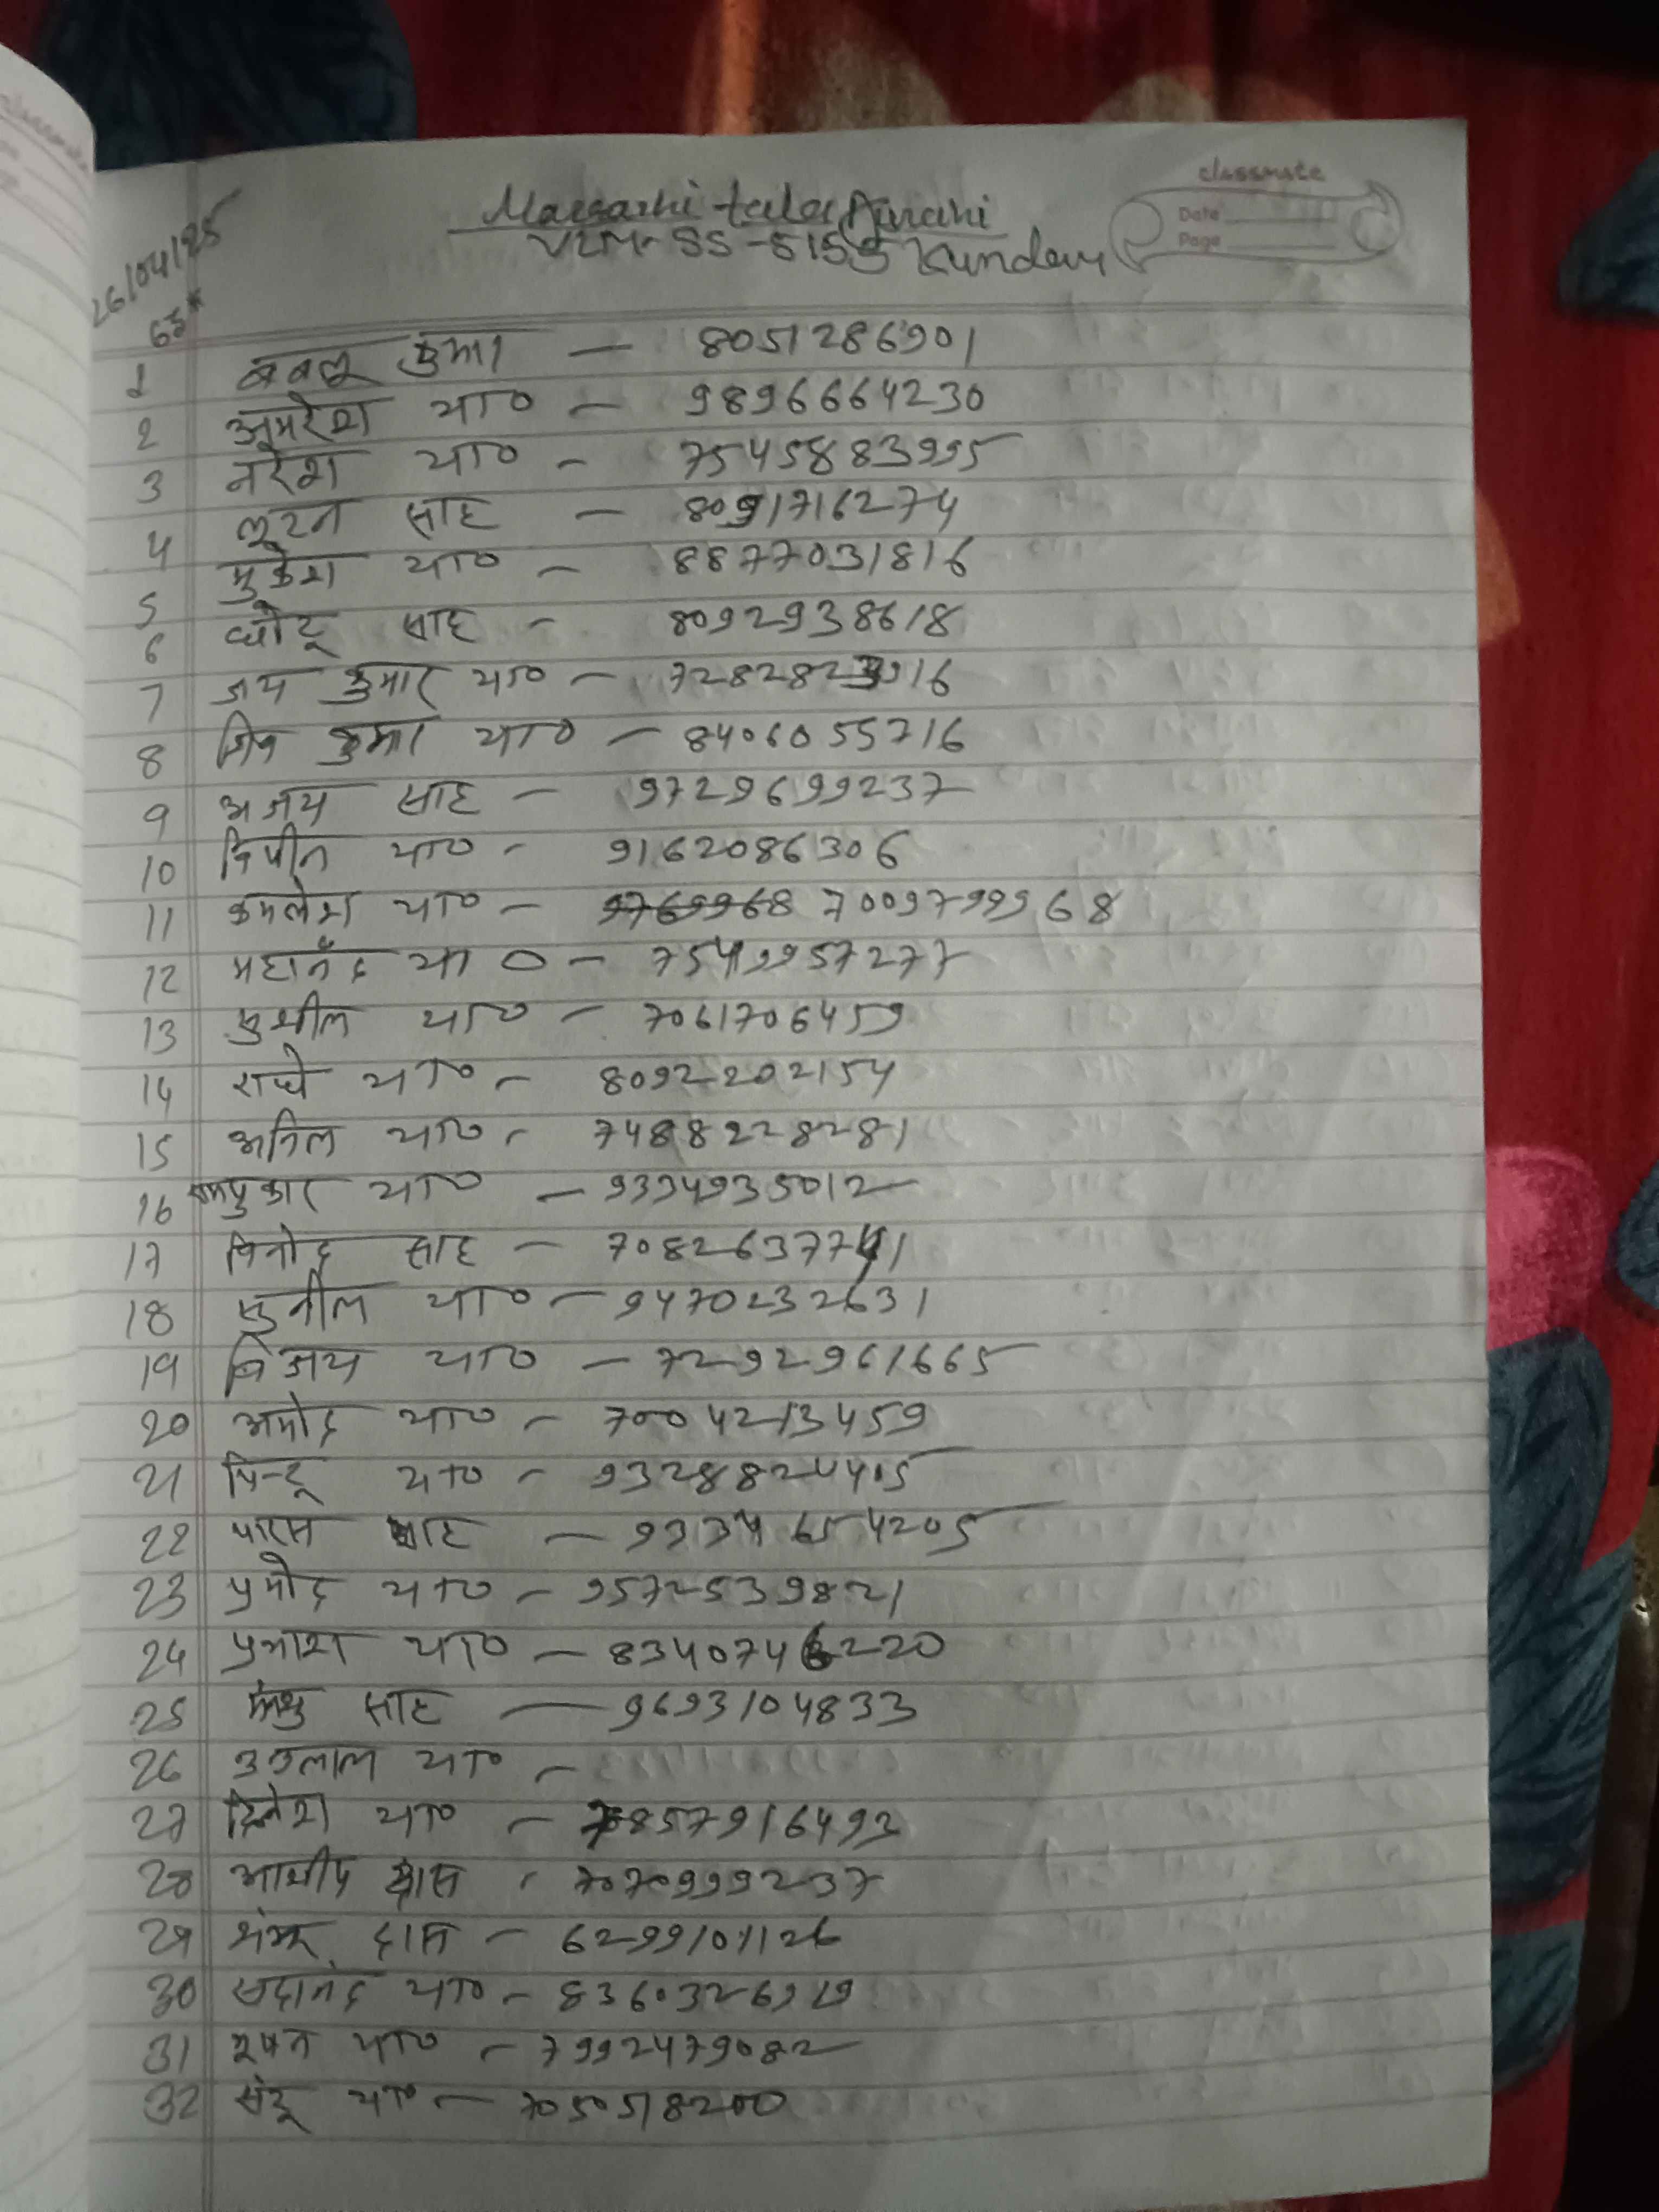 classmate
Date
Page
26/04/25
Marsarhi tola Ajnahi
VLM- SS-5155 Kundan
1 बबलू कुमार — 8051286901
2 अमरेश या० – 9896664230
3 नरेश या० – 7545883995
4 लूटन साह – 8091716274
5 मुकेश या० – 8877031816
6 छोटू साह – 8092938618
7 जय कुमार या० – 72828
8 शिव कुमार या० – 8406055716
9 अजय साह – 9729699237
10 विपीन या० - 9162086306
11 कमलेश या० – 9769968 7009799968
12 महानंद या० – 7549957277
13 सुशील या० – 7061706459
14 राधे या० – 8092202154
15 अनिल या० - 7488228281
16 रामपुकार या० – 9334935012
17 विनोद साह – 7082637741
18 सुनील या० – 9470232631
19 विजय या० – 7292961665
20 अमोद या० – 7004213459
21 पिन्टू या० –
22 पारस साह – 9334654205
23 प्रमोद या० – 9572539821
24 प्रकाश या० – 8340746220
25 साह — 9693104833
26 लाल या० –
27 दिनेश या० – 7857916493
28 दास - 7070999237
29 शंकर दास – 6299101126
30 सदानंद या० – 8360326919
31 भूषन या० – 7992479082
32 संटू या० – 7050518200